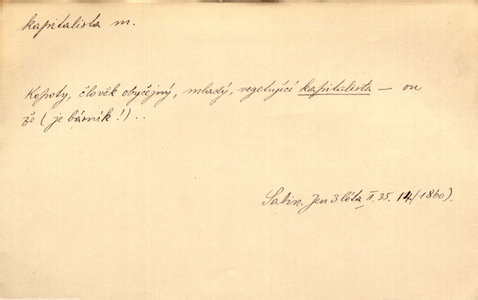 kapitalista m.
Kopoty, člověk obyčejný, mladý, vegetující kapitalista — on
že (je básník!)..
Sabin. Jen 3 léta II. 35. 14 (1860).